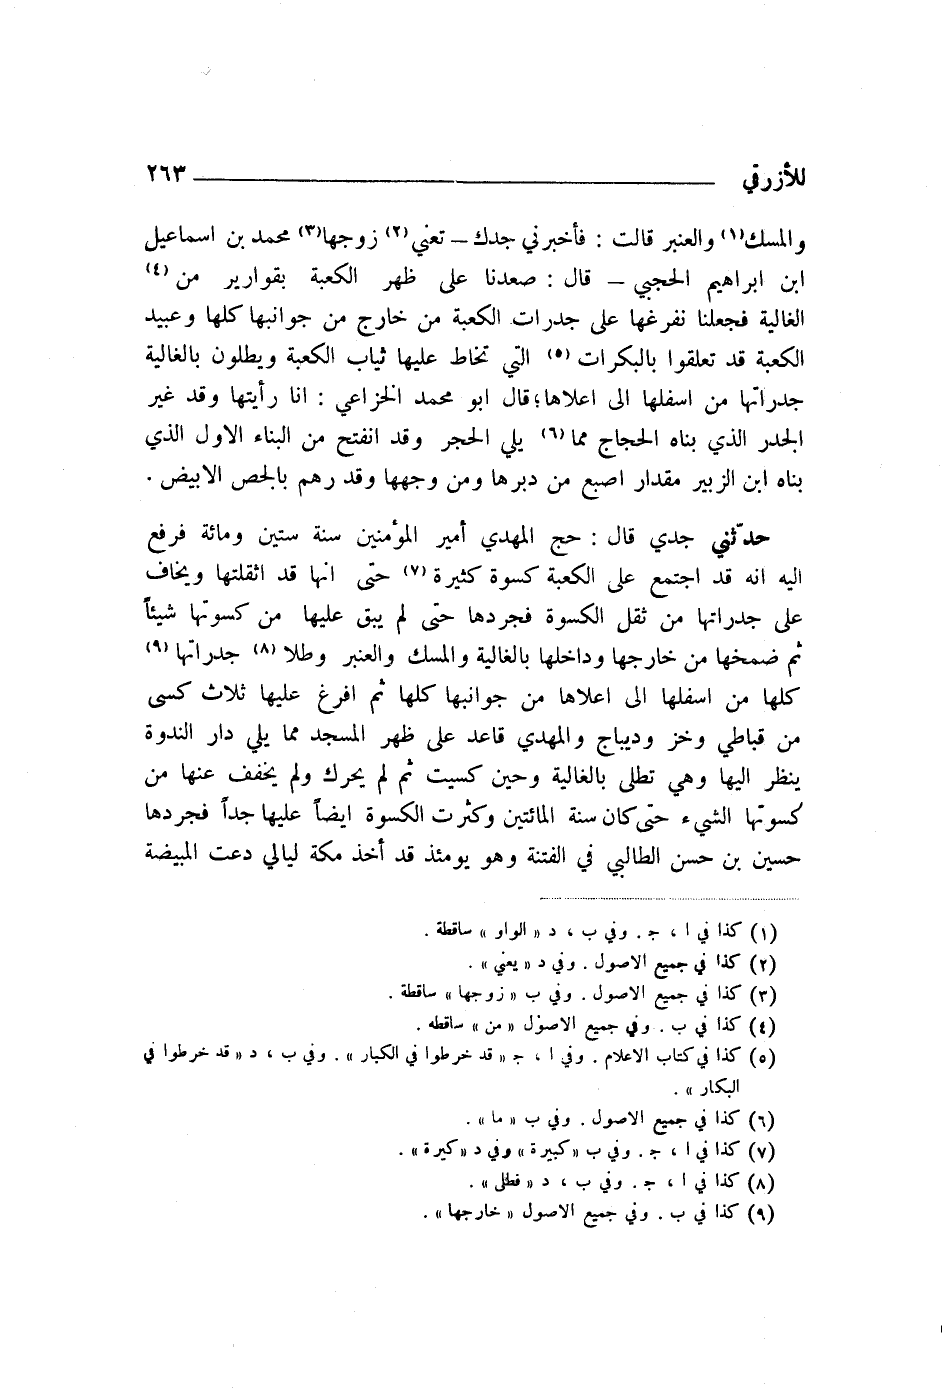 للأزرقي ٢٦٣
والمسك(١) والعنبر قالت : فأخبرني جدك — تعني(٢) زوجها(٣) محمد بن اسماعيل
ابن ابراهيم الحجبي — قال : صعدنا على ظهر الكعبة بقوارير من(٤)
الغالية فجعلنا نفرغها على جدرات الكعبة من خارج من جوانبها كلها وعبيد
الكعبة قد تعلقوا بالبكرات(٥) التي تخاط عليها ثياب الكعبة ويطلون بالغالية
جدراتها من اسفلها الى اعلاها؛ قال ابو محمد الخزاعي : انا رأيتها وقد غير
الجدر الذي بناه الحجاج مما(٦) يلي الحجر وقد انفتح من البناء الاول الذي
بناه ابن الزبير مقدار اصبع من دبرها ومن وجهها وقد رهم بالجص الابيض .
حدّثني جدي قال : حج المهدي أمير المؤمنين سنة ستين ومائة فرفع
اليه انه قد اجتمع على الكعبة كسوة كثيرة(٧) حتى انها قد اثقلتها ويخاف
على جدراتها من ثقل الكسوة فجردها حتى لم يبق عليها من كسوتها شيئاً
ثم ضمخها من خارجها وداخلها بالغالية والمسك والعنبر وطلا(٨) جدراتها(٩)
كلها من اسفلها الى اعلاها من جوانبها كلها ثم افرغ عليها ثلاث كسى
من قباطي وخز وديباج والمهدي قاعد على ظهر المسجد مما يلي دار الندوة
ينظر اليها وهي تطلى بالغالية وحين كسيت ثم لم يحرك ولم يخفف عنها من
كسوتها الشيء حتى كان سنة المائتين وكثرت الكسوة ايضاً عليها جداً فجردها
حسين بن حسن الطالبي في الفتنة وهو يومئذ قد أخذ مكة ليالي دعت المبيضة
(١) كذا في ا ، ج . وفي ب ، د « الواو » ساقطة .
(٢) كذا في جميع الاصول . وفي د « يعني » .
(٣) كذا في جميع الاصول . وفي ب « زوجها » ساقطة .
(٤) كذا في ب . وفي جميع الاصول « من » ساقطه .
(٥) كذا في كتاب الاعلام . وفي ا ، ج « قد خرطوا في الكبار » . وفي ب ، د « قد خرطوا في
البكار » .
(٦) كذا في جميع الاصول . وفي ب « ما » .
(٧) كذا في ا ، ج . وفي ب « كبيرة » وفي د « كيرة » .
(٨) كذا في ا ، ج . وفي ب ، د « فطلى » .
(٩) كذا في ب . وفي جميع الاصول « خارجها » .